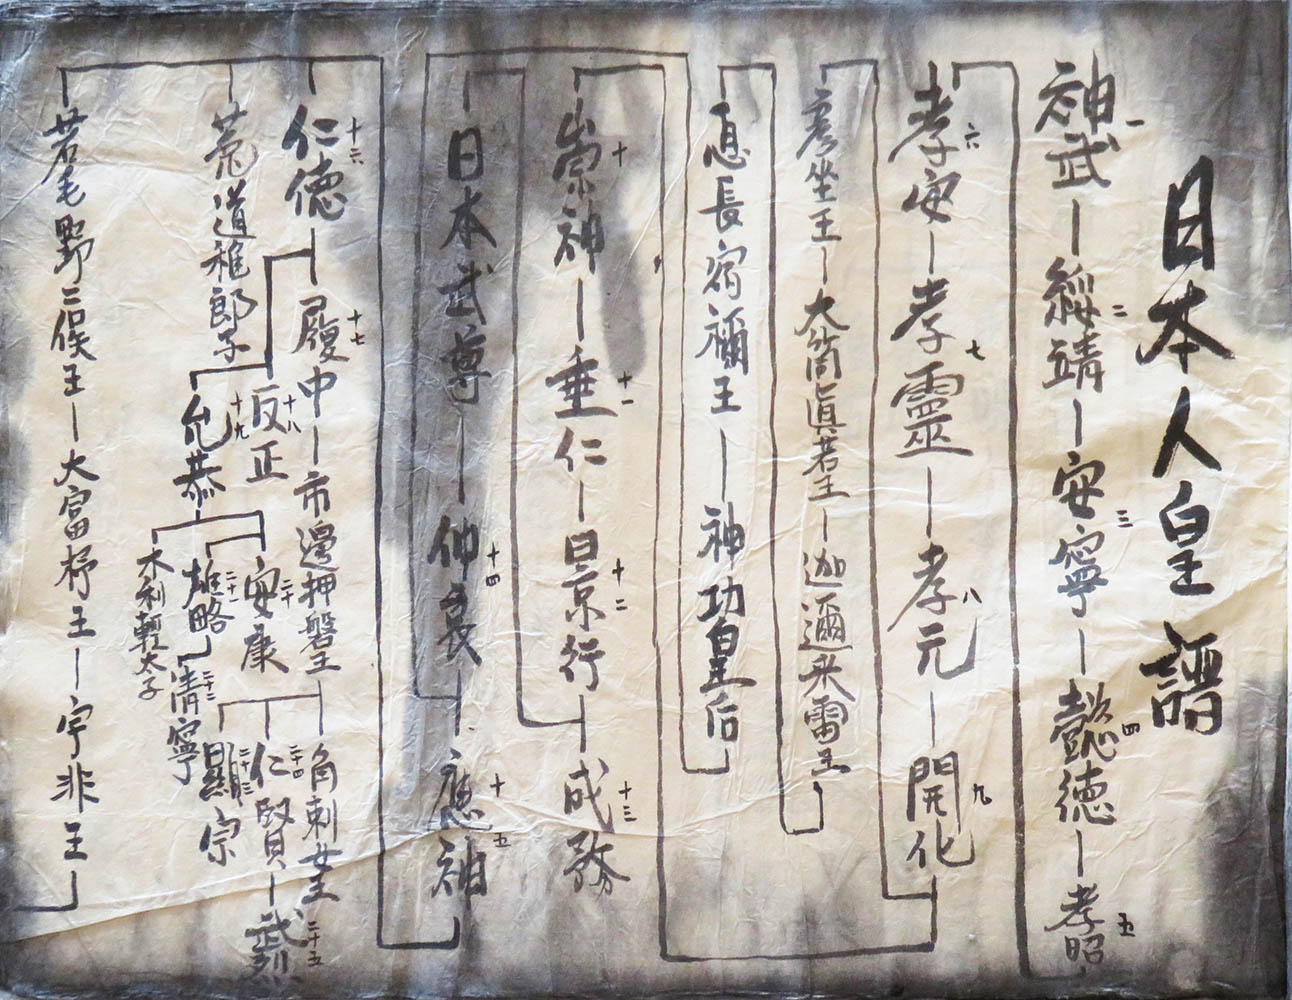 日本人皇譜
神武一 綏靖二 安寧三 懿德四 孝昭五
孝安六 孝靈七 孝元八 開化九
彥坐王 大筒眞若王 迦邇米雷王
息長宿禰王 神功皇后
崇神十 垂仁十一 景行十二 成務十三
日本武尊 仲哀十四 應神十五
仁徳十六 履中十七 市邊押磐王 角刺女王
反正十八 仁賢二十四 武烈二十五
菟道稚郎子 允恭十九 安康二十 顯宗二十三
雄略二十一 清寧二十二
木利輕太子
若毛野二俣王 大富杼王 宇非王